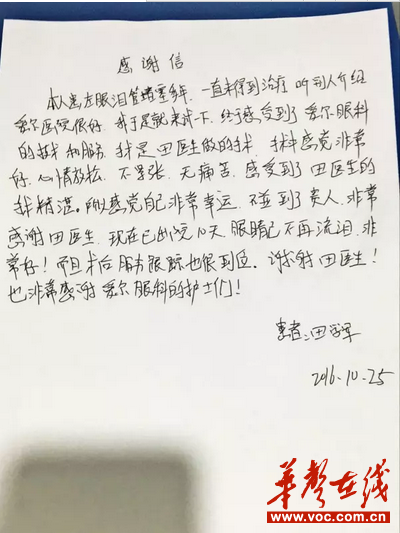 感谢信
本人患左眼泪管堵塞多年,一直未得到治疗,听别人介绍
爱尔医院很好,我于是就来试一下,终于感受到了爱尔眼科
的技术和服务,我是田医生做的手术,技术感觉非常
好,心情放松,不紧张,无痛苦,感受到了田医生的
技术精湛。所以感觉自己非常幸运,碰到了贵人,非常
感谢田医生,现在已出院10天,眼睛已不再流泪,非
常好!而且术后服务跟踪也很到位。谢谢田医生!
也非常感谢爱尔眼科的护士们!
患者:田
2016.10.25
华声在线
www.voc.com.cn